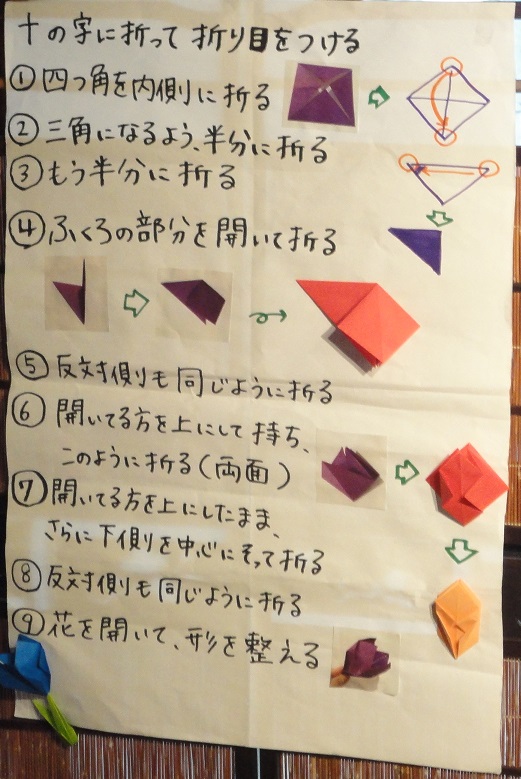 十の字に折って折り目をつける
①四つ角を内側に折る
②三角になるよう、半分に折る
③もう半分に折る
④ふくろの部分を開いて折る
⑤反対側も同じように折る
⑥開いてる方を上にして持ち、
このように折る(両面)
⑦開いてる方を上にしたまま、
さらに下側を中心にそって折る
⑧反対側も同じように折る
⑨花を開いて、形を整える